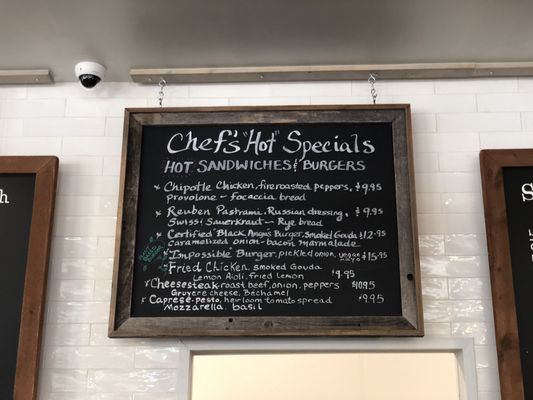 Chef's "Hot" Specials
HOT SANDWICHES & BURGERS
* Chipotle Chicken, fire roasted, peppers, $9.95
provolone - focaccia bread
* Reuben Pastrami, Russian dressing, $9.95
Swiss Sauerkraut - Rye bread
* Certified Black Angus Burger, Smoked Gouda $12.95
caramelized onion - bacon marmalade
* Impossible Burger, pickled onion, vegan mayo $15.95
* Fried Chicken, smoked Gouda
Lemon Aioli, fried lemon $9.95
* Cheesesteak - roast beef, onion, peppers $10.95
Gruyere cheese, Bechamel
* Caprese - pesto, heirloom tomato spread $9.95
Mozzarella, basil
h
S